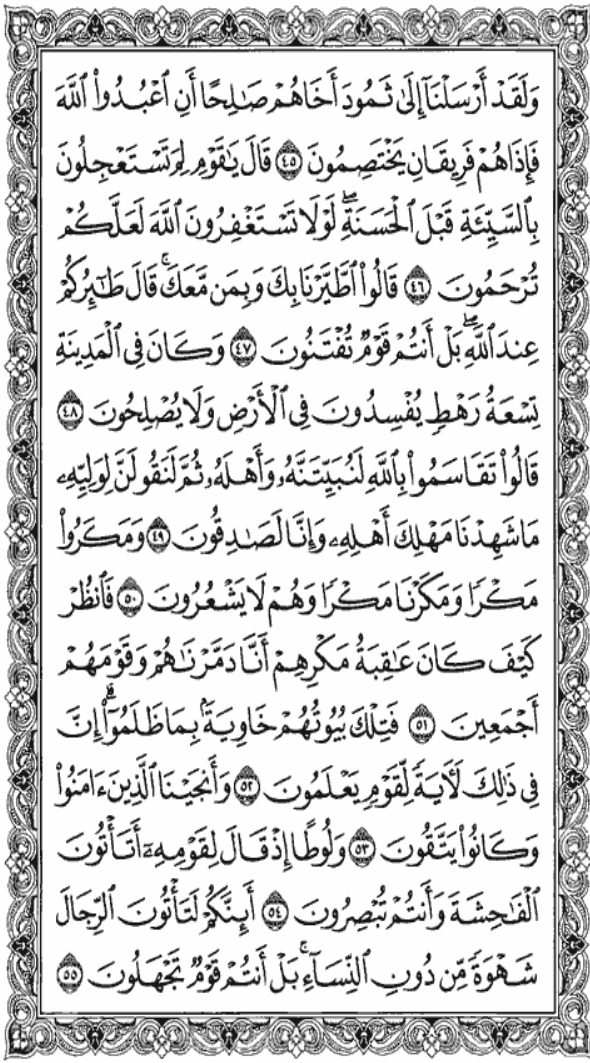 وَلَقَدْ أَرْسَلْنَآ إِلَىٰ ثَمُودَ أَخَاهُمْ صَـٰلِحًا أَنِ ٱعْبُدُوا۟ ٱللَّهَ
فَإِذَا هُمْ فَرِيقَانِ يَخْتَصِمُونَ ٤٥ قَالَ يَـٰقَوْمِ لِمَ تَسْتَعْجِلُونَ
بِٱلسَّيِّئَةِ قَبْلَ ٱلْحَسَنَةِ ۖ لَوْلَا تَسْتَغْفِرُونَ ٱللَّهَ لَعَلَّكُمْ
تُرْحَمُونَ ٤٦ قَالُوا۟ ٱطَّيَّرْنَا بِكَ وَبِمَن مَّعَكَ ۚ قَالَ طَـٰٓئِرُكُمْ
عِندَ ٱللَّهِ ۖ بَلْ أَنتُمْ قَوْمٌ تُفْتَنُونَ ٤٧ وَكَانَ فِى ٱلْمَدِينَةِ
تِسْعَةُ رَهْطٍ يُفْسِدُونَ فِى ٱلْأَرْضِ وَلَا يُصْلِحُونَ ٤٨
قَالُوا۟ تَقَاسَمُوا۟ بِٱللَّهِ لَنُبَيِّتَنَّهُۥ وَأَهْلَهُۥ ثُمَّ لَنَقُولَنَّ لِوَلِيِّهِۦ
مَا شَهِدْنَا مَهْلِكَ أَهْلِهِۦ وَإِنَّا لَصَـٰدِقُونَ ٤٩ وَمَكَرُوا۟
مَكْرًا وَمَكَرْنَا مَكْرًا وَهُمْ لَا يَشْعُرُونَ ٥٠ فَٱنظُرْ
كَيْفَ كَانَ عَـٰقِبَةُ مَكْرِهِمْ أَنَّا دَمَّرْنَـٰهُمْ وَقَوْمَهُمْ
أَجْمَعِينَ ٥١ فَتِلْكَ بُيُوتُهُمْ خَاوِيَةًۢ بِمَا ظَلَمُوٓا۟ ۗ إِنَّ
فِى ذَٰلِكَ لَـَٔايَةً لِّقَوْمٍ يَعْلَمُونَ ٥٢ وَأَنجَيْنَا ٱلَّذِينَ ءَامَنُوا۟
وَكَانُوا۟ يَتَّقُونَ ٥٣ وَلُوطًا إِذْ قَالَ لِقَوْمِهِۦٓ أَتَأْتُونَ
ٱلْفَـٰحِشَةَ وَأَنتُمْ تُبْصِرُونَ ٥٤ أَئِنَّكُمْ لَتَأْتُونَ ٱلرِّجَالَ
شَهْوَةً مِّن دُونِ ٱلنِّسَآءِ ۚ بَلْ أَنتُمْ قَوْمٌ تَجْهَلُونَ ٥٥